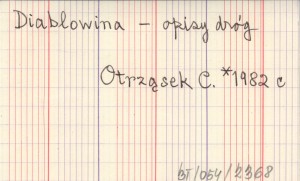 Diabłowina – opisy dróg
Otrząsek C. *1982 c
BT/054/2368